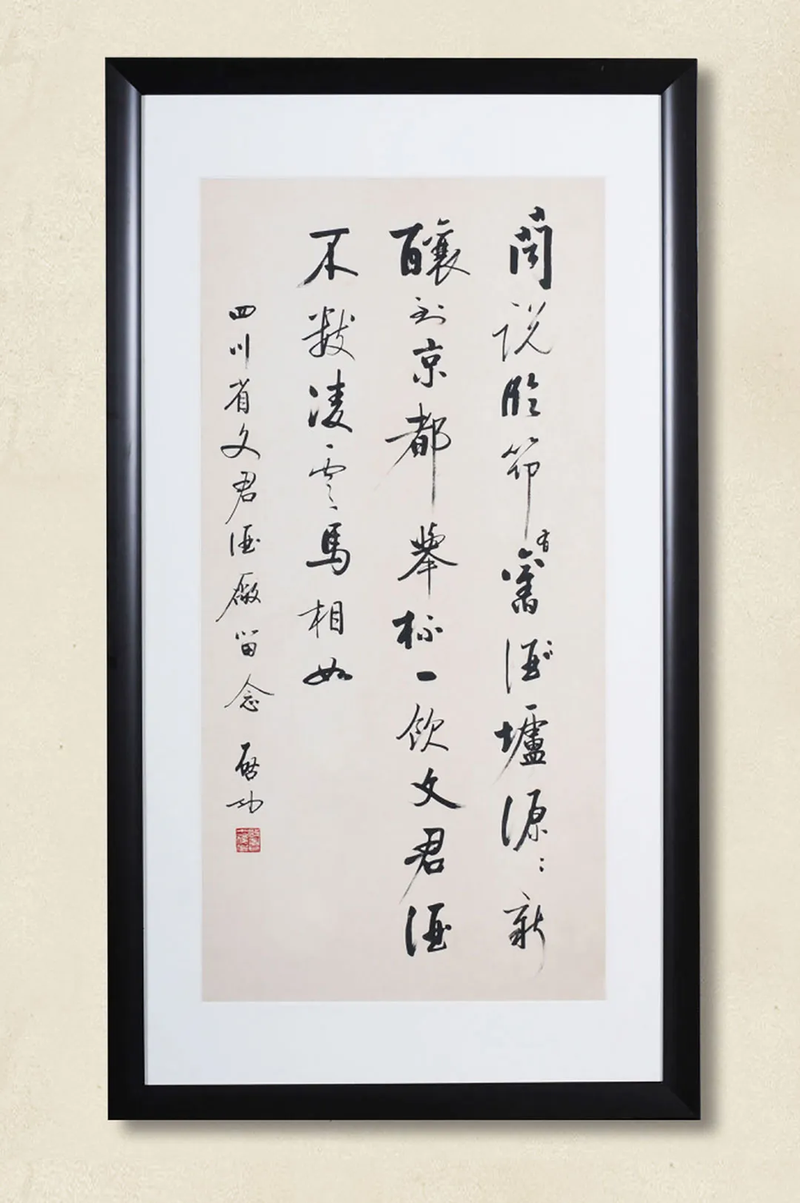 聞说臨邛有舊酒壚源〻新
釀到京都舉杯一飲文君酒
不數凌雲馬相如
四川省文君酒廠留念 啟功